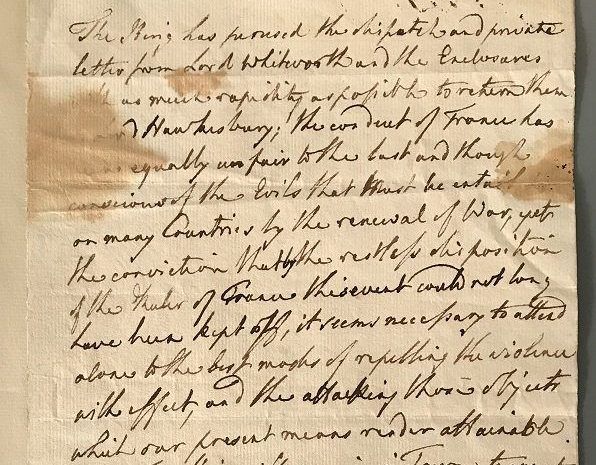 The King has perused the dispatch and private
letter from Lord Whitworth and the Enclosures
with as much rapidity as possible to return them
Hawkesbury; the conduct of France has
equally unfair to the last and though
conscious of the Evils that must be entail
on many Countries by the renewal of War, yet
the conviction that by the restless disposition
of the Ruler of France this event could not long
have been kept off, it seems necessary to attend
alone to the best modes of repelling the violence
with effect, and the attacking those objects
which our present means render attainable.